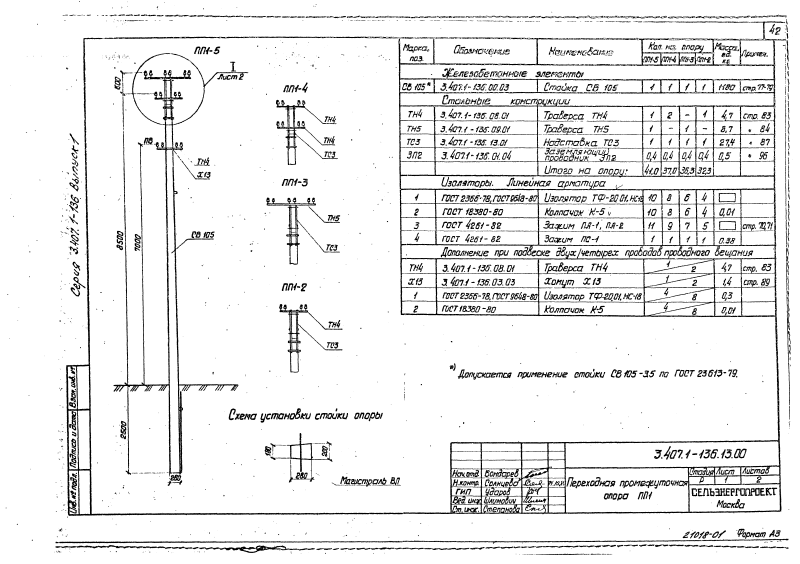 42
Серия 3.407.1-136 Выпуск 1
ПП1-5
I
Лист 2
600
ПВ
ТН4
Х13
8500
7000
СВ 105
2500
280
ПП1-4
ТН4
ТН4
ТС3
ПП1-3
ТН5
ТС3
ПП1-2
ТН4
ТС3
Схема установки стойки опоры
280
Магистраль ВЛ
Марка, поз. Обозначение Наименование Кол. на опору Масса, ед. кг Примеч.
ПП1-5 ПП1-4 ПП1-3 ПП1-2
Железобетонные элементы
СВ 105*) 3.407.1-136.00.03 Стойка СВ 105 1 1 1 1 1180 стр. 77-79
Стальные конструкции
ТН4 3.407.1-136.08.01 Траверса ТН4 1 2 - 1 4,7 стр. 83
ТН5 3.407.1-136.09.01 Траверса ТН5 1 - 1 - 8,7 " 84
ТС3 3.407.1-136.13.01 Надставка ТС3 1 1 1 1 27,4 " 87
ЗП2 3.407.1-136.01.04 Заземляющий проводник ЗП2 0,4 0,4 0,4 0,4 0,5 " 96
Итого на опору: 41,0 37,0 36,3 32,3
Изоляторы. Линейная арматура
1 ГОСТ 2366-78, ГОСТ 9648-80 Изолятор ТФ-20.01, НС-18 10 8 6 4
2 ГОСТ 18380-80 Колпачок К-5 10 8 6 4 0,01
3 ГОСТ 4261-82 Зажим ПА-1, ПА-2 11 9 7 5 стр. 70,71
4 ГОСТ 4261-82 Зажим ПС-1 1 1 1 1 0.38
Дополнение при подвеске двух/четырех проводов проводного вещания
ТН4 3.407.1-136.08.01 Траверса ТН4 1 2 4,7 стр. 83
Х13 3.407.1-136.03.03 Хомут Х13 1 2 1,4 стр. 89
1 ГОСТ 2366-78, ГОСТ 9648-80 Изолятор ТФ-20.01, НС-18 4 8 0,3
2 ГОСТ 18380-80 Колпачок К-5 4 8 0,01
*) Допускается применение стойки СВ 105-3.5 по ГОСТ 23613-79.
3.407.1-136.13.00
Нач. отд. Бондарев
Н.контр. Солнцева
ГИП Ударов
Вед. инж.
Ст. инж. Степанова
Переходная промежуточная опора ПП1
Стадия Лист Листов
Р 1 2
СЕЛЬЭНЕРГОПРОЕКТ
Москва
Инв. № подл. Подпись и дата Взам. инв. №
21018-01 Формат А3